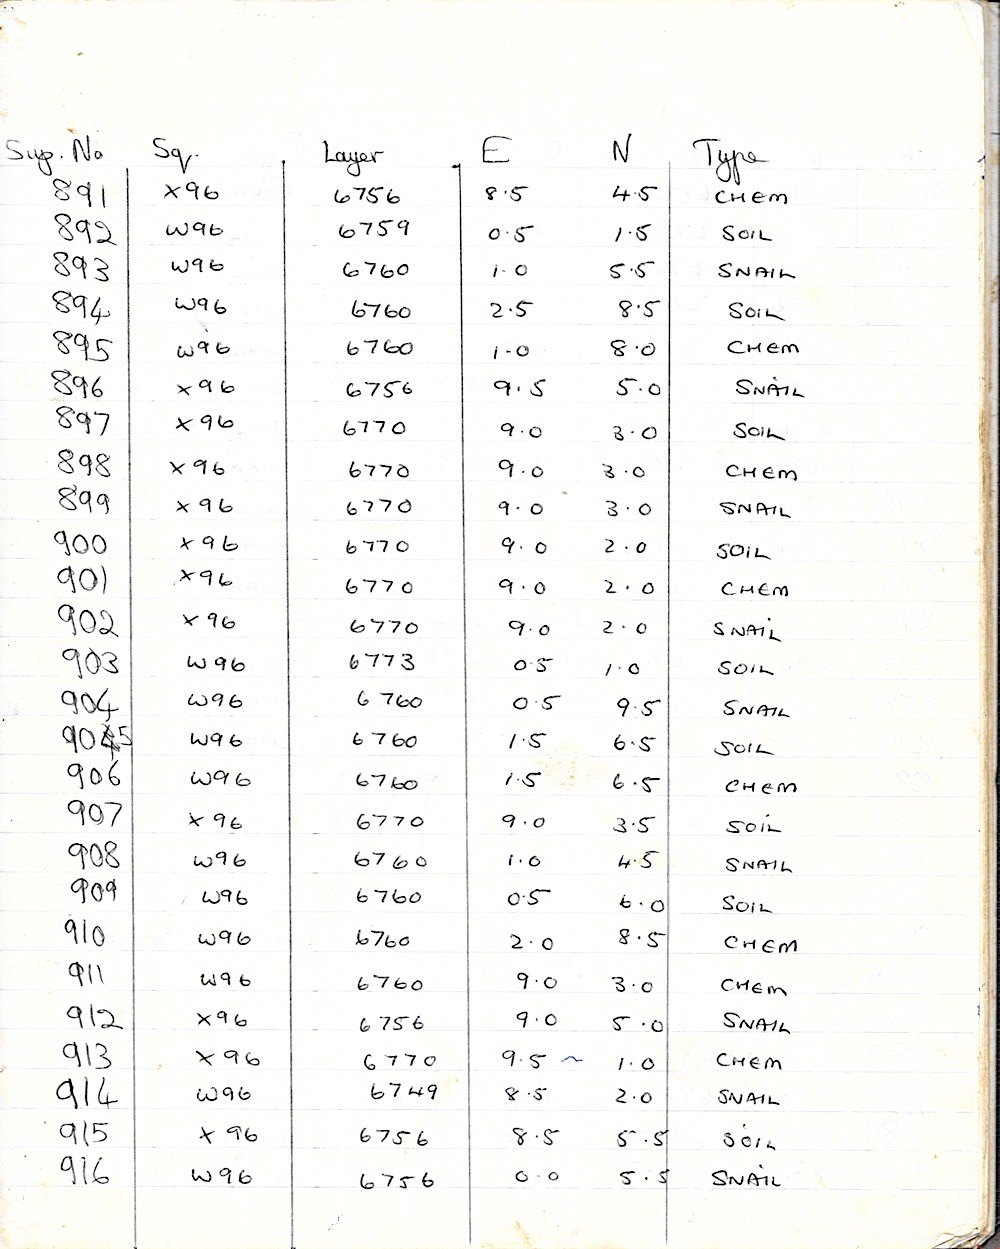 Sup. No Sq. Layer E N Type
891 X96 6756 8.5 4.5 CHEM
892 W96 6759 0.5 1.5 SOIL
893 W96 6760 1.0 5.5 SNAIL
894 W96 6760 2.5 8.5 SOIL
895 W96 6760 1.0 8.0 CHEM
896 X96 6756 9.5 5.0 SNAIL
897 X96 6770 9.0 3.0 SOIL
898 X96 6770 9.0 3.0 CHEM
899 X96 6770 9.0 3.0 SNAIL
900 X96 6770 9.0 2.0 SOIL
901 X96 6770 9.0 2.0 CHEM
902 X96 6770 9.0 2.0 SNAIL
903 W96 6773 0.5 1.0 SOIL
904 W96 6760 0.5 9.5 SNAIL
905 W96 6760 1.5 6.5 SOIL
906 W96 6760 1.5 6.5 CHEM
907 X96 6770 9.0 3.5 SOIL
908 W96 6760 1.0 4.5 SNAIL
909 W96 6760 0.5 6.0 SOIL
910 W96 6760 2.0 8.5 CHEM
911 W96 6760 9.0 3.0 CHEM
912 X96 6756 9.0 5.0 SNAIL
913 X96 6770 9.5 ~ 1.0 CHEM
914 W96 6749 8.5 2.0 SNAIL
915 X96 6756 8.5 5.5 SOIL
916 W96 6756 0.0 5.5 SNAIL